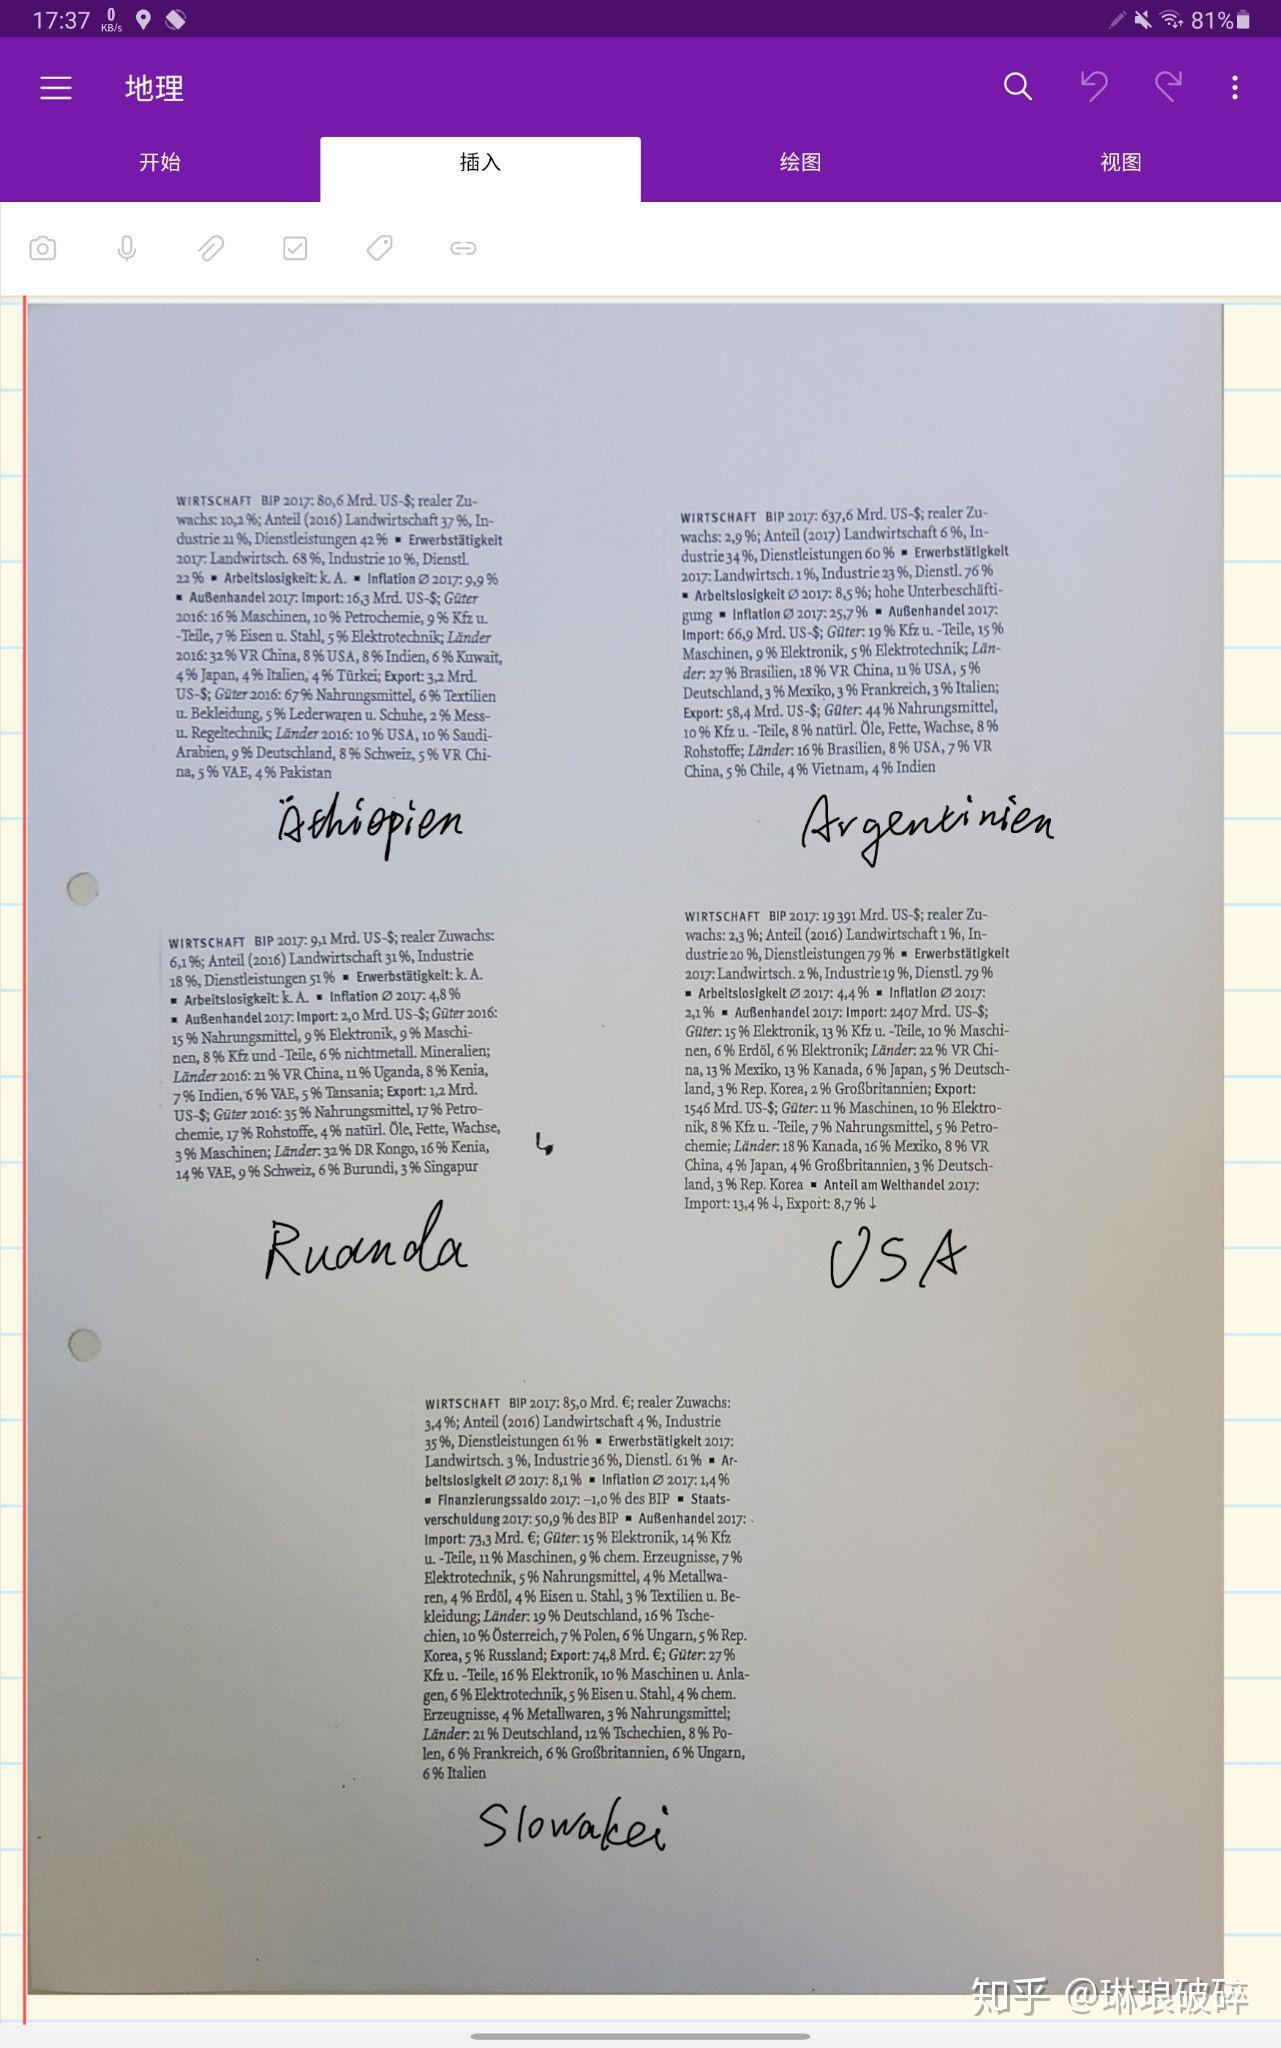 17:37 0 KB/s 81%
地理
开始 插入 绘图 视图
WIRTSCHAFT BIP 2017: 80,6 Mrd. US-$; realer Zu-
wachs: 10,2 %; Anteil (2016) Landwirtschaft 37 %, In-
dustrie 21 %, Dienstleistungen 42 % ▪ Erwerbstätigkeit
2017: Landwirtsch. 68 %, Industrie 10 %, Dienstl.
22 % ▪ Arbeitslosigkeit: k. A. ▪ Inflation Ø 2017: 9,9 %
▪ Außenhandel 2017: Import: 16,3 Mrd. US-$; Güter
2016: 16 % Maschinen, 10 % Petrochemie, 9 % Kfz u.
-Teile, 7 % Eisen u. Stahl, 5 % Elektrotechnik; Länder
2016: 32 % VR China, 8 % USA, 8 % Indien, 6 % Kuwait,
4 % Japan, 4 % Italien, 4 % Türkei; Export: 3,2 Mrd.
US-$; Güter 2016: 67 % Nahrungsmittel, 6 % Textilien
u. Bekleidung, 5 % Lederwaren u. Schuhe, 2 % Mess-
u. Regeltechnik; Länder 2016: 10 % USA, 10 % Saudi-
Arabien, 9 % Deutschland, 8 % Schweiz, 5 % VR Chi-
na, 5 % VAE, 4 % Pakistan
Äthiopien
WIRTSCHAFT BIP 2017: 637,6 Mrd. US-$; realer Zu-
wachs: 2,9 %; Anteil (2017) Landwirtschaft 6 %, In-
dustrie 34 %, Dienstleistungen 60 % ▪ Erwerbstätigkeit
2017: Landwirtsch. 1 %, Industrie 23 %, Dienstl. 76 %
▪ Arbeitslosigkeit Ø 2017: 8,5 %; hohe Unterbeschäfti-
gung ▪ Inflation Ø 2017: 25,7 % ▪ Außenhandel 2017:
Import: 66,9 Mrd. US-$; Güter: 19 % Kfz u. -Teile, 15 %
Maschinen, 9 % Elektronik, 5 % Elektrotechnik; Län-
der: 27 % Brasilien, 18 % VR China, 11 % USA, 5 %
Deutschland, 3 % Mexiko, 3 % Frankreich, 3 % Italien;
Export: 58,4 Mrd. US-$; Güter: 44 % Nahrungsmittel,
10 % Kfz u. -Teile, 8 % natürl. Öle, Fette, Wachse, 8 %
Rohstoffe; Länder: 16 % Brasilien, 8 % USA, 7 % VR
China, 5 % Chile, 4 % Vietnam, 4 % Indien
Argentinien
WIRTSCHAFT BIP 2017: 9,1 Mrd. US-$; realer Zuwachs:
6,1 %; Anteil (2016) Landwirtschaft 31 %, Industrie
18 %, Dienstleistungen 51 % ▪ Erwerbstätigkeit: k. A.
▪ Arbeitslosigkeit: k. A. ▪ Inflation Ø 2017: 4,8 %
▪ Außenhandel 2017: Import: 2,0 Mrd. US-$; Güter 2016:
15 % Nahrungsmittel, 9 % Elektronik, 9 % Maschi-
nen, 8 % Kfz und -Teile, 6 % nichtmetall. Mineralien;
Länder 2016: 21 % VR China, 11 % Uganda, 8 % Kenia,
7 % Indien, 6 % VAE, 5 % Tansania; Export: 1,2 Mrd.
US-$; Güter 2016: 35 % Nahrungsmittel, 17 % Petro-
chemie, 17 % Rohstoffe, 4 % natürl. Öle, Fette, Wachse,
3 % Maschinen; Länder: 32 % DR Kongo, 16 % Kenia,
14 % VAE, 9 % Schweiz, 6 % Burundi, 3 % Singapur
Ruanda
WIRTSCHAFT BIP 2017: 19 391 Mrd. US-$; realer Zu-
wachs: 2,3 %; Anteil (2016) Landwirtschaft 1 %, In-
dustrie 20 %, Dienstleistungen 79 % ▪ Erwerbstätigkeit
2017: Landwirtsch. 2 %, Industrie 19 %, Dienstl. 79 %
▪ Arbeitslosigkeit Ø 2017: 4,4 % ▪ Inflation Ø 2017:
2,1 % ▪ Außenhandel 2017: Import: 2407 Mrd. US-$;
Güter: 15 % Elektronik, 13 % Kfz u. -Teile, 10 % Maschi-
nen, 6 % Erdöl, 6 % Elektronik; Länder: 22 % VR Chi-
na, 13 % Mexiko, 13 % Kanada, 6 % Japan, 5 % Deutsch-
land, 3 % Rep. Korea, 2 % Großbritannien; Export:
1546 Mrd. US-$; Güter: 11 % Maschinen, 10 % Elektro-
nik, 8 % Kfz u. -Teile, 7 % Nahrungsmittel, 5 % Petro-
chemie; Länder: 18 % Kanada, 16 % Mexiko, 8 % VR
China, 4 % Japan, 4 % Großbritannien, 3 % Deutsch-
land, 3 % Rep. Korea ▪ Anteil am Welthandel 2017:
Import: 13,4 % ↓, Export: 8,7 % ↓
USA
WIRTSCHAFT BIP 2017: 85,0 Mrd. €; realer Zuwachs:
3,4 %; Anteil (2016) Landwirtschaft 4 %, Industrie
35 %, Dienstleistungen 61 % ▪ Erwerbstätigkeit 2017:
Landwirtsch. 3 %, Industrie 36 %, Dienstl. 61 % ▪ Ar-
beitslosigkeit Ø 2017: 8,1 % ▪ Inflation Ø 2017: 1,4 %
▪ Finanzierungssaldo 2017: –1,0 % des BIP ▪ Staats-
verschuldung 2017: 50,9 % des BIP ▪ Außenhandel 2017:
Import: 73,3 Mrd. €; Güter: 15 % Elektronik, 14 % Kfz
u. -Teile, 11 % Maschinen, 9 % chem. Erzeugnisse, 7 %
Elektrotechnik, 5 % Nahrungsmittel, 4 % Metallwa-
ren, 4 % Erdöl, 4 % Eisen u. Stahl, 3 % Textilien u. Be-
kleidung; Länder: 19 % Deutschland, 16 % Tsche-
chien, 10 % Österreich, 7 % Polen, 6 % Ungarn, 5 % Rep.
Korea, 5 % Russland; Export: 74,8 Mrd. €; Güter: 27 %
Kfz u. -Teile, 16 % Elektronik, 10 % Maschinen u. Anla-
gen, 6 % Elektrotechnik, 5 % Eisen u. Stahl, 4 % chem.
Erzeugnisse, 4 % Metallwaren, 3 % Nahrungsmittel;
Länder: 21 % Deutschland, 12 % Tschechien, 8 % Po-
len, 6 % Frankreich, 6 % Großbritannien, 6 % Ungarn,
6 % Italien
Slowakei
知乎 @琳琅破碎